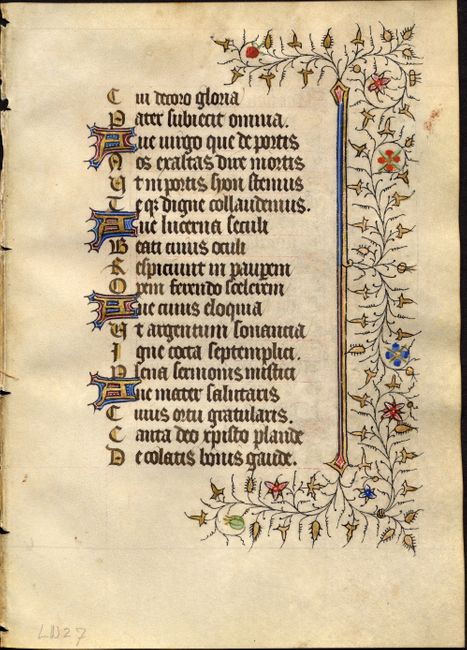 Cui decoro gloria
Pater subiecit omnia.
Aue uirgo que de portis
Nos exaltas dire mortis
Ut in portis syon stemus
Te qz digne collaudemus.
Aue lucerna seculi
Beati cuius oculi
Respiciunt in paupem
Opem ferendo
Aue cuius eloquia
Ut argentum sonancia
Igne cocta septemplici.
Plena sermonis mistici
Aue mater salutaris
Cuius ortu gratularis.
Canta deo xpisto plaude
De colatis bonis gaude.